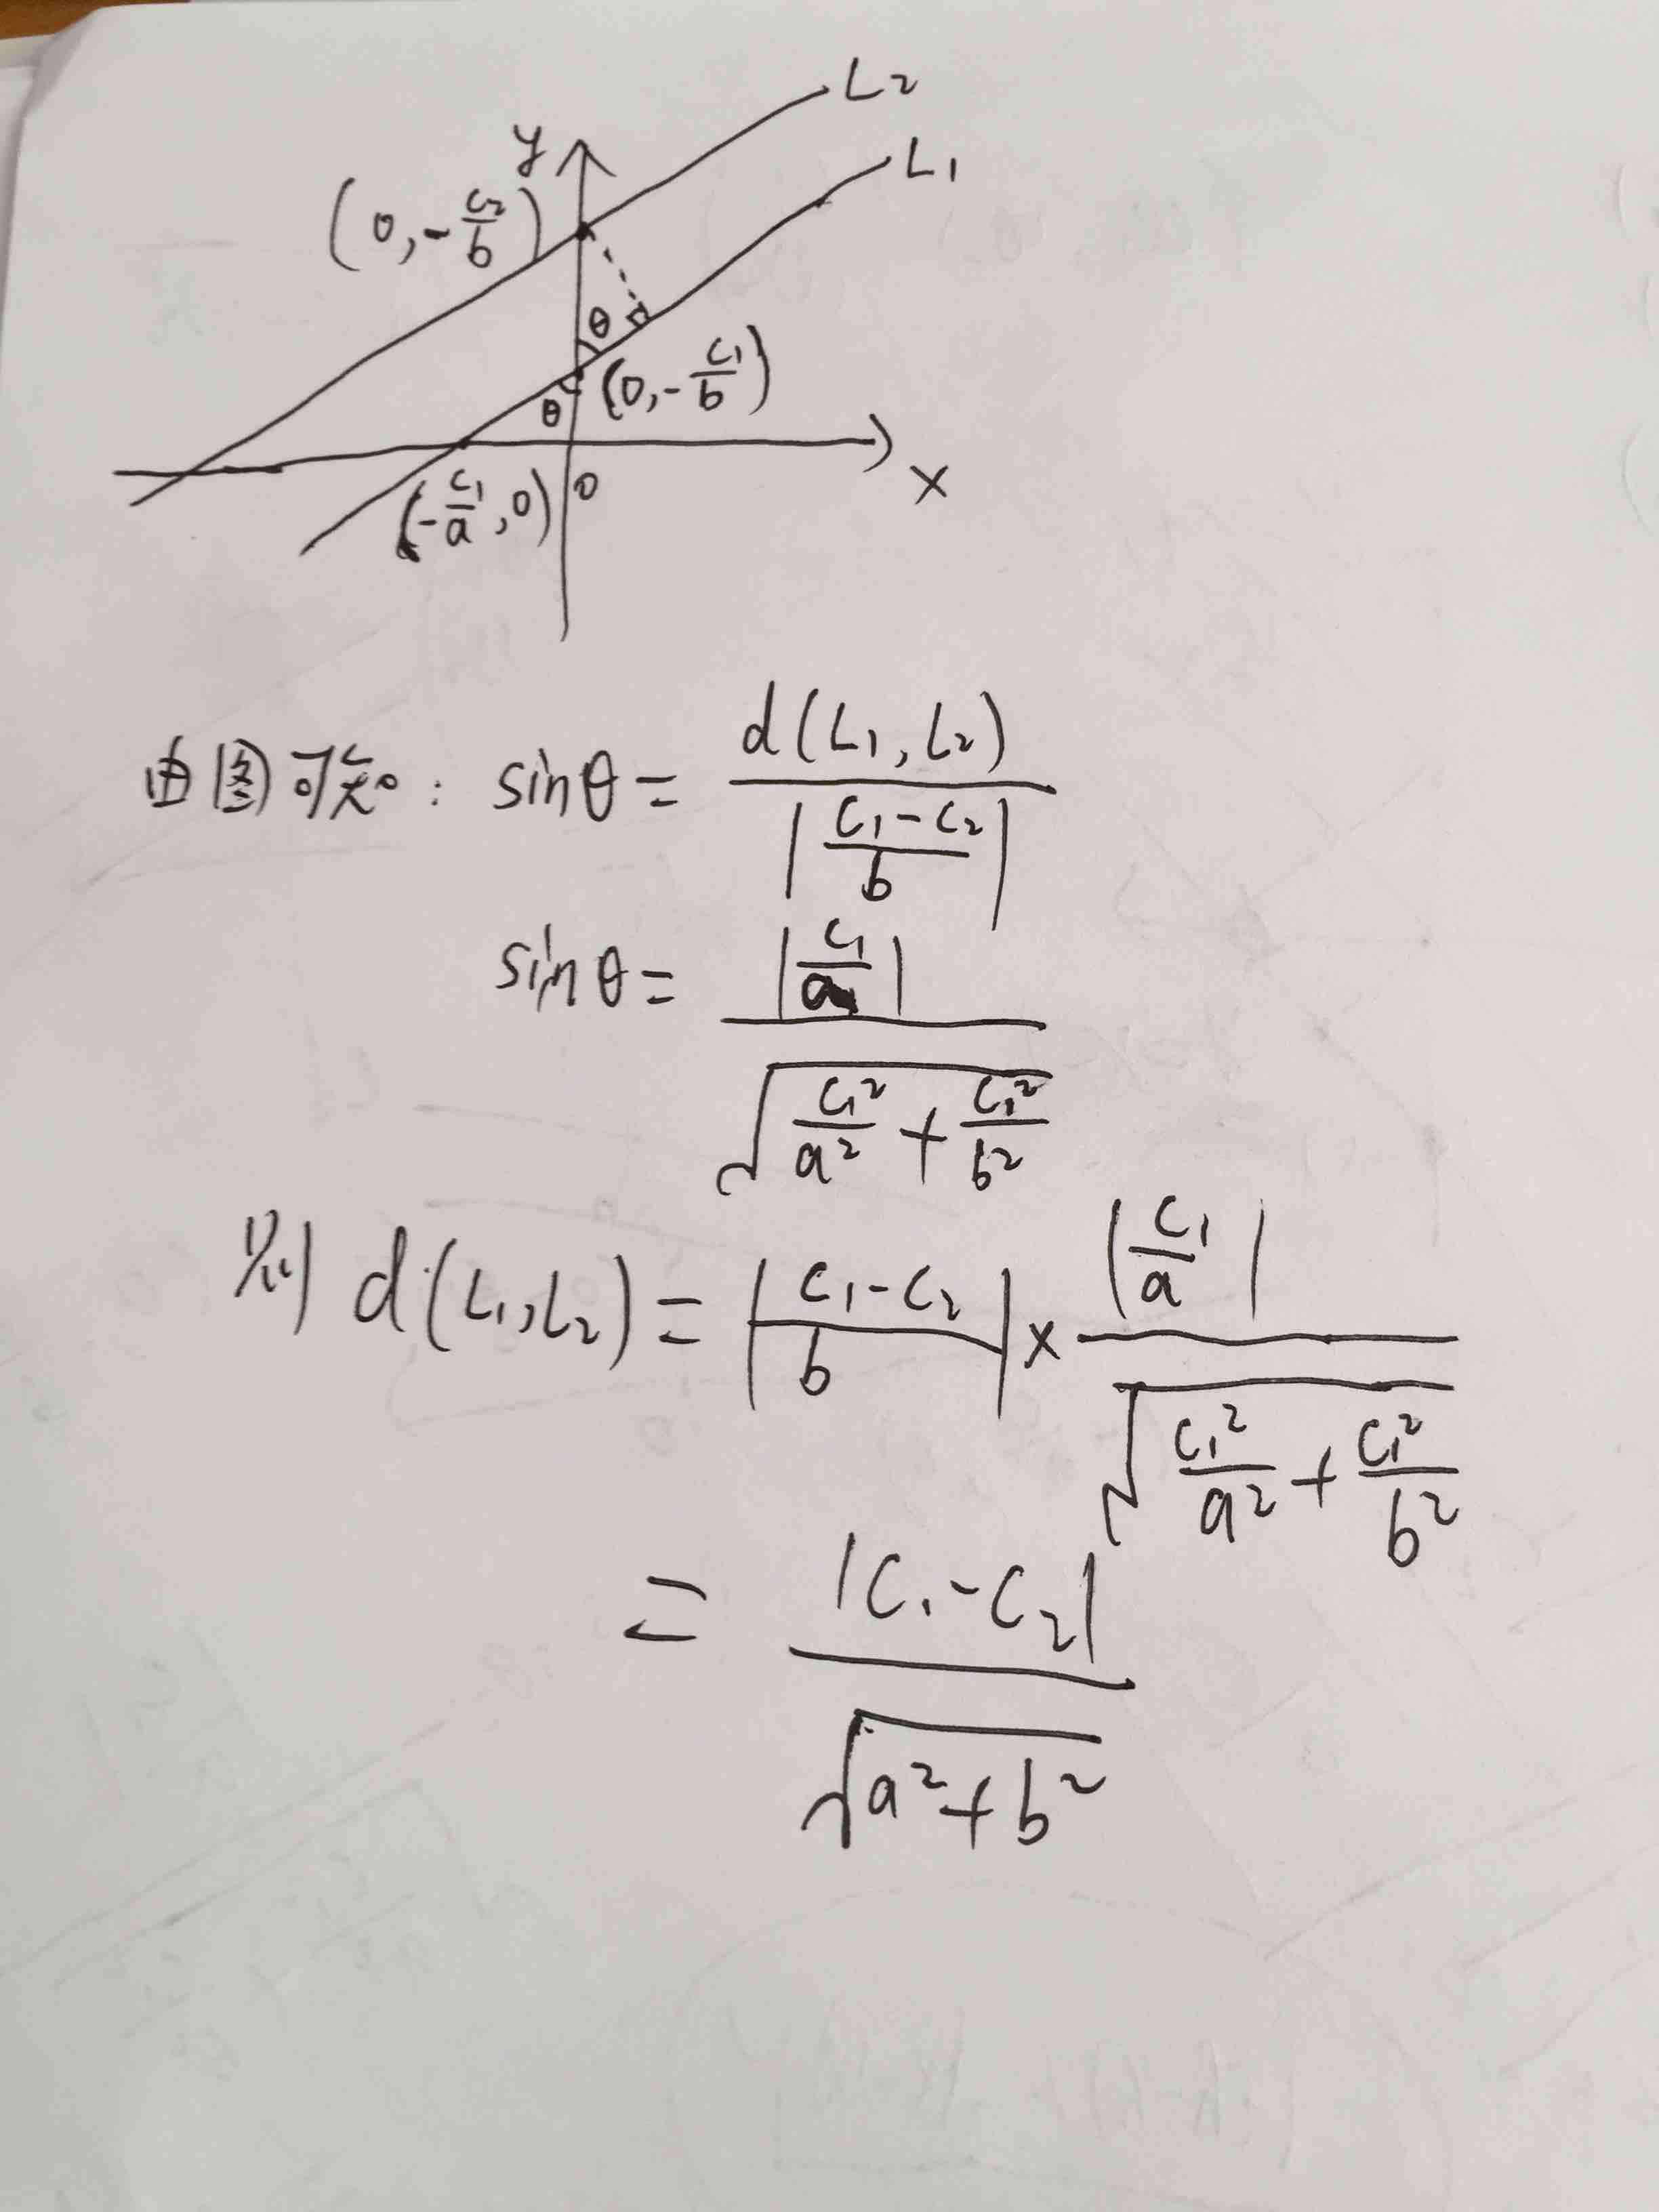 L₂
y
L₁
(0, -c₂/b)
θ
(0, -c₁/b)
θ
x
(-c₁/a, 0)
0
由图可知: sinθ = d(L₁, L₂) / |(c₁-c₂)/b|
sinθ = |c₁/a| / √(c₁²/a² + c₁²/b²)
则 d(L₁, L₂) = |(c₁-c₂)/b| × |c₁/a| / √(c₁²/a² + c₁²/b²)
= |c₁-c₂| / √(a²+b²)